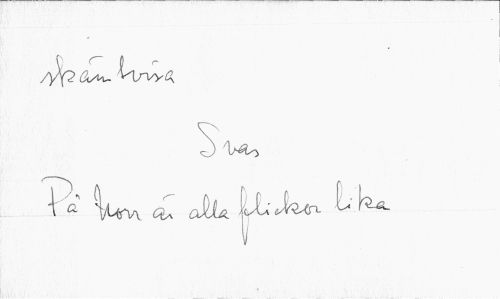 skämtvisa
Svas
På Norr är alla flickor lika